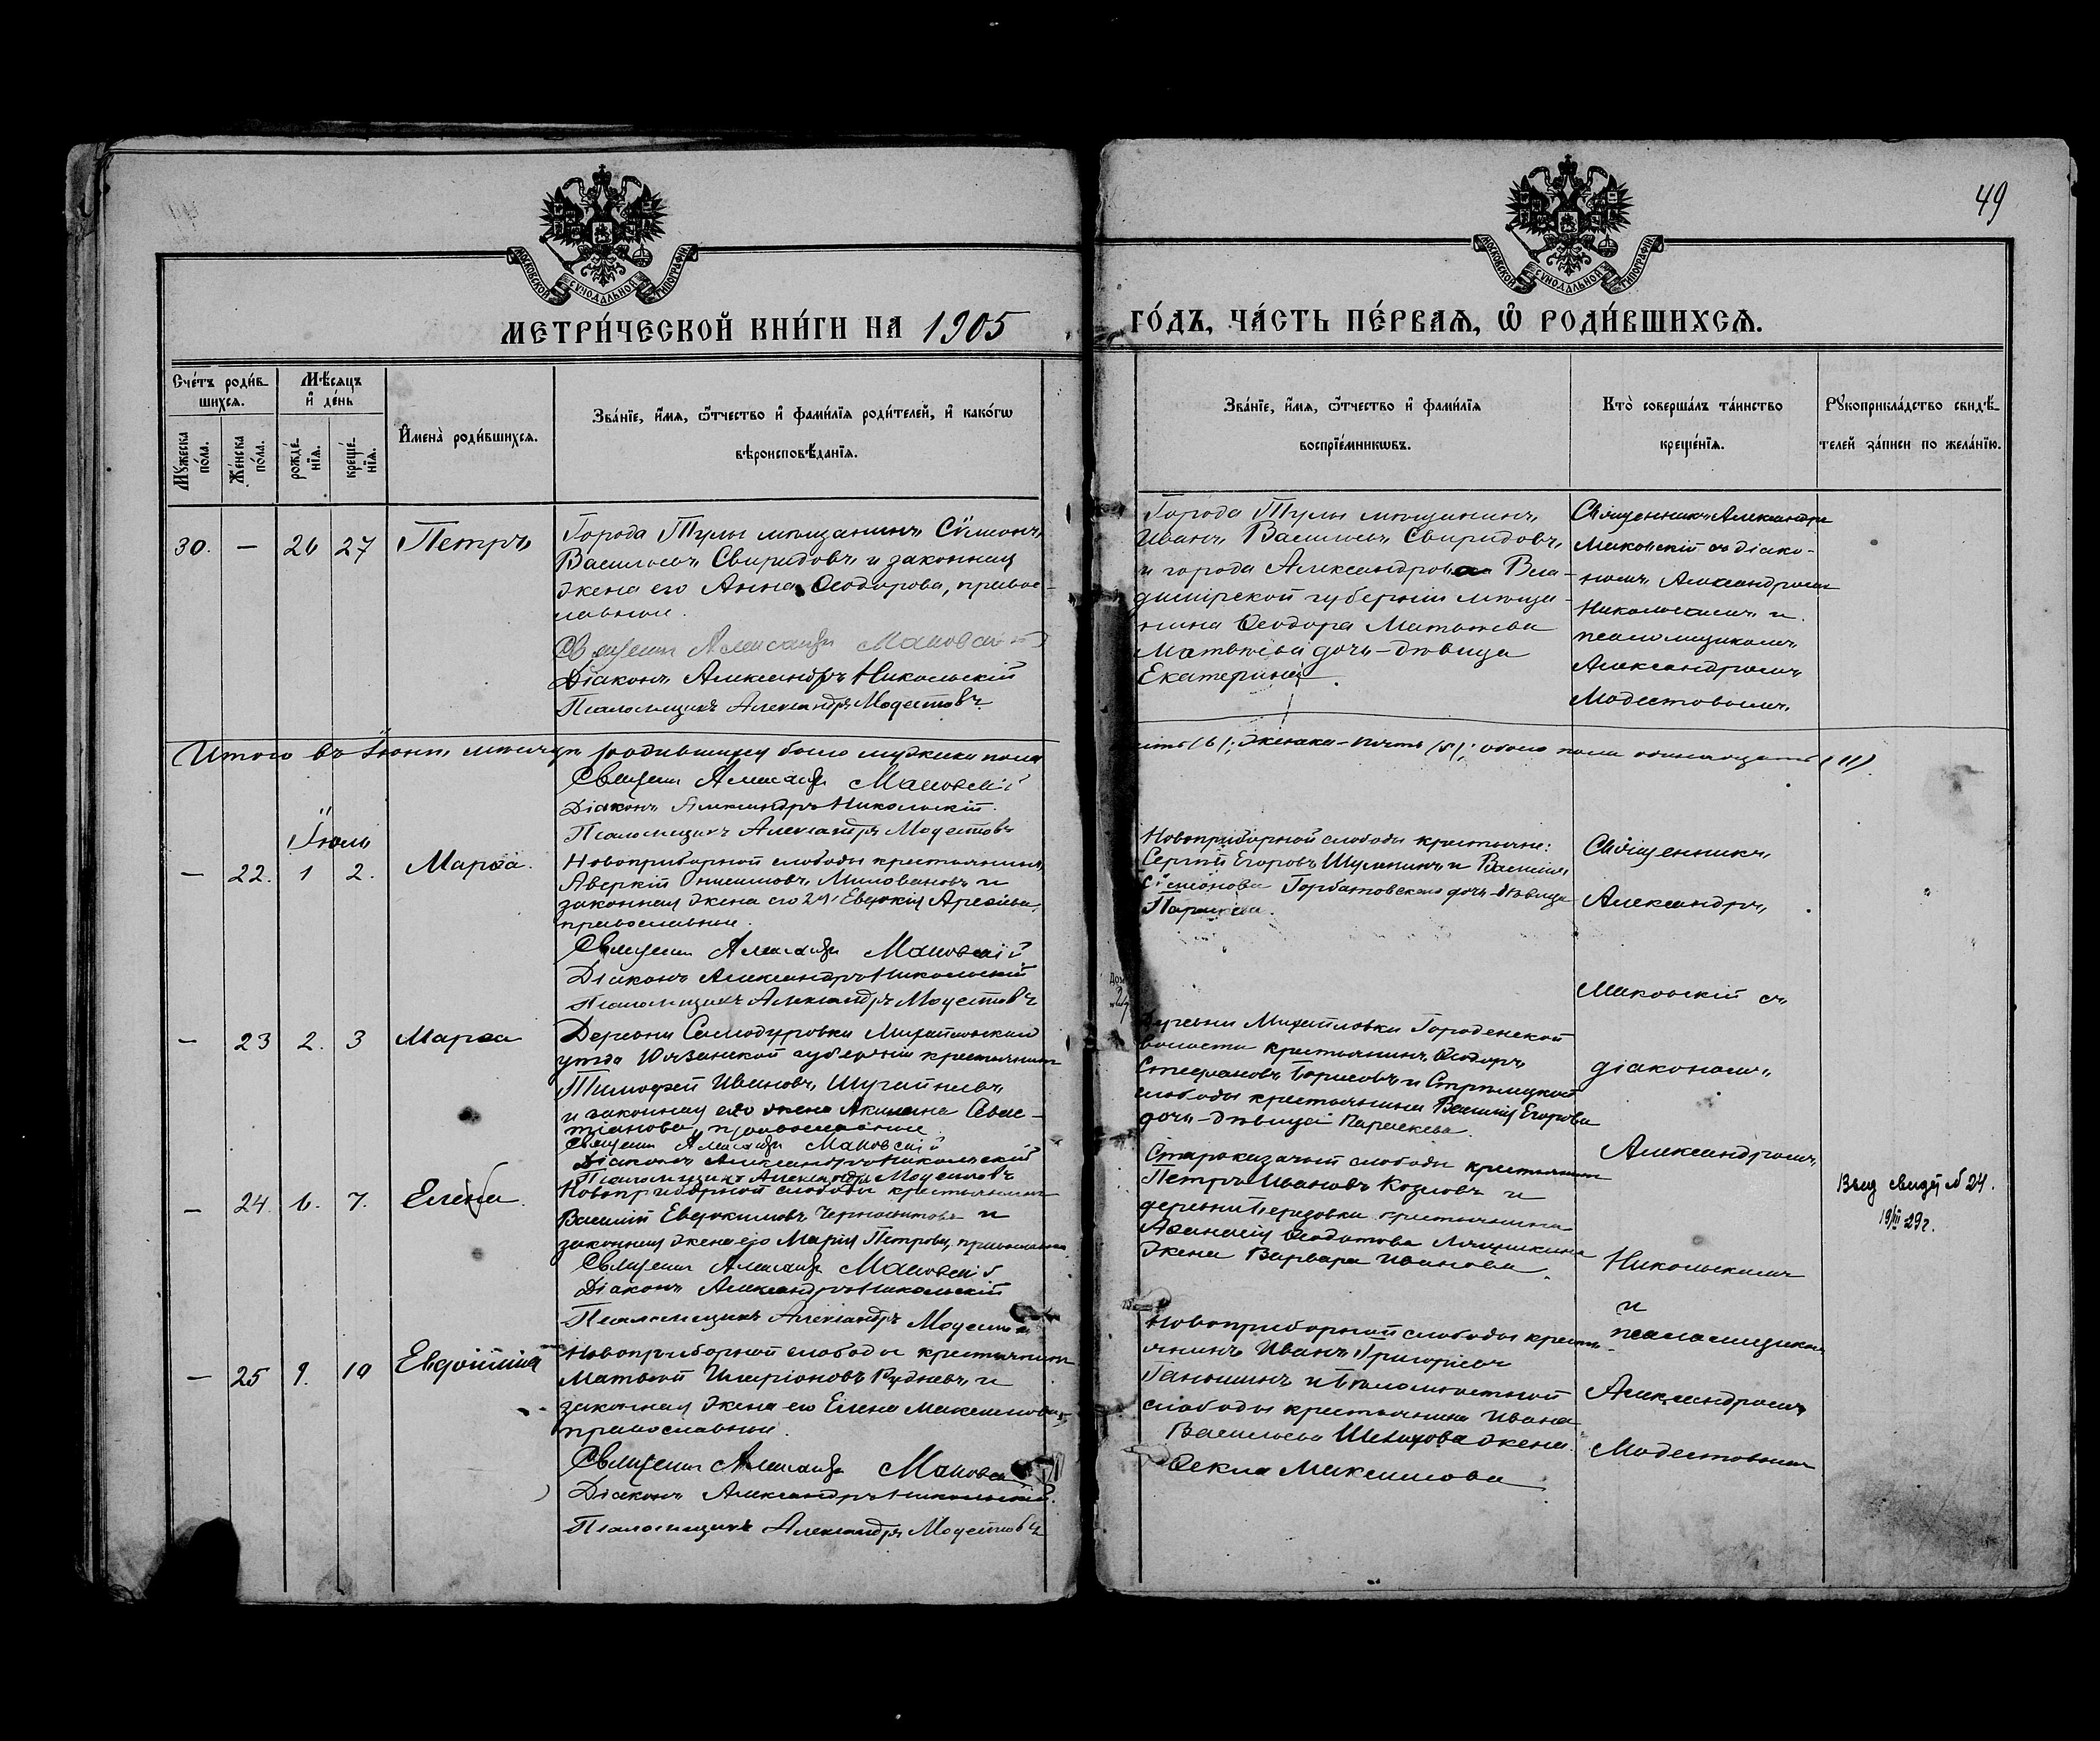 49
МОСКОВСКОЙ СѴНОДАЛЬНОЙ ТИПОГРАФІИ
МОСКОВСКОЙ СѴНОДАЛЬНОЙ ТИПОГРАФІИ
МЕТРИ́ЧЕСКОЙ КНИ́ГИ НА 1905
ГО́ДЪ, ЧА́СТЬ ПЕ́РВАѦ, Ѡ҆ РОДИ́ВШИХСѦ.
Сче́тъ роди́в-
шихсѧ.
Мꙋжеска по́ла.
Же́нска по́ла.
Мѣ́сѧцъ
и҆ де́нь
рожде́-
нїѧ.
креще́-
нїѧ.
И҆мена̀ роди́вшихсѧ.
Зва́нїе, и҆́мѧ, ѻ҆́тчество и҆ фами́лїѧ роди́телей, и҆ како́гѡ
вѣроисповѣ́данїѧ.
Зва́нїе, и҆́мѧ, ѻ҆́тчество и҆ фами́лїѧ
воспрїе́мникѡвъ.
Кто̀ соверша́лъ та́инство
креще́нїѧ.
Рꙋкоприкла́дство свидѣ́-
телей за́писи по жела́нїю.
30. — 26 27 Петръ
Города Тулы мѣщанинъ Сѵмеонъ
Васильевъ Свиридовъ и законная
жена его Анна Ѳеодорова, правос-
лавные.
Священникъ Александръ Маковскій
Діаконъ Александръ Никольскій
Псаломщикъ Александръ Модестовъ
Города Тулы мѣщанинъ
Иванъ Васильевъ Свиридовъ,
и города Александрова Вла-
димірской губерніи мѣща-
нина Ѳеодора Матвѣева
Матвѣева дочь-дѣвица
Екатерина.
Священникъ Александръ
Маковскій съ діако-
номъ Александромъ
Никольскимъ и
псаломщикомъ
Александромъ
Модестовымъ
Итого въ Іюнѣ мѣсяцѣ родившихся было мужеска пола
шесть (6); женска - пять (5); обоего пола одинадцать (11)
Священникъ Александръ Маковскій
Діаконъ Александръ Никольскій.
Псаломщикъ Александръ Модестовъ
Іюль
— 22. 1 2. Марѳа.
Новоприборной слободы крестьянинъ
Аверкій Онисимовъ Миловановъ и
законная жена его Евдокія Ареѳіева,
православные.
Священникъ Александръ Маковскій
Діаконъ Александръ Никольскій
Псаломщикъ Александръ Модестовъ
Новоприборной слободы крестьяне:
Сергій Егоровъ и Василія
Симеонова Горбатовскаго дочь-дѣвица
Параскева.
Священникъ
Александръ
Маковскій съ
діакономъ
Александромъ
Никольскимъ
и
псаломщикомъ
Александромъ
Модестовымъ
— 23 2. 3 Марѳа
Деревни Самодуровки Михайловскаго
уѣзда Рязанской губерніи крестьянинъ
Тимофей Ивановъ
и законная его жена Акилина Севас-
тіанова, православные
Священникъ Александръ Маковскій
Діаконъ Александръ Никольскій
Псаломщикъ Александръ Модестовъ
Деревни Михайловки Городенской
волости крестьянинъ Ѳеодоръ
Стефановъ Борисовъ и Стрѣлецкой
слободы крестьянина Василія Егорова
дочь-дѣвица Параскева.
— 24. 6. 7. Елена
Новоприборной слободы крестьянинъ
Василій Евдокимовъ и
законная жена его Марія Петрова, православные
Священникъ Александръ Маковскій
Діаконъ Александръ Никольскій
Псаломщикъ Александръ Модестовъ
Староказачьей слободы крестьянинъ
Петръ Ивановъ Козловъ и
деревни Березовки крестьянина
Аѳанасія Ѳедотова Лягушкина
жена Варвара Иванова.
Выд свидѣт № 24.
19/III 29 г.
— 25 9. 10 Евдокія
Новоприборной слободы крестьянинъ
Матвей Иларіоновъ Рудневъ и
законная жена его Елена Максимова,
православные.
Священникъ Александръ Маковскій
Діаконъ Александръ Никольскій.
Псаломщикъ Александръ Модестовъ
Новоприборной слободы кресть-
янинъ Иванъ Григорьевъ
Ганьшинъ и Бѣломѣстной
слободы крестьянина Ивана
Васильева Шевцова жена
Ѳекла Максимова